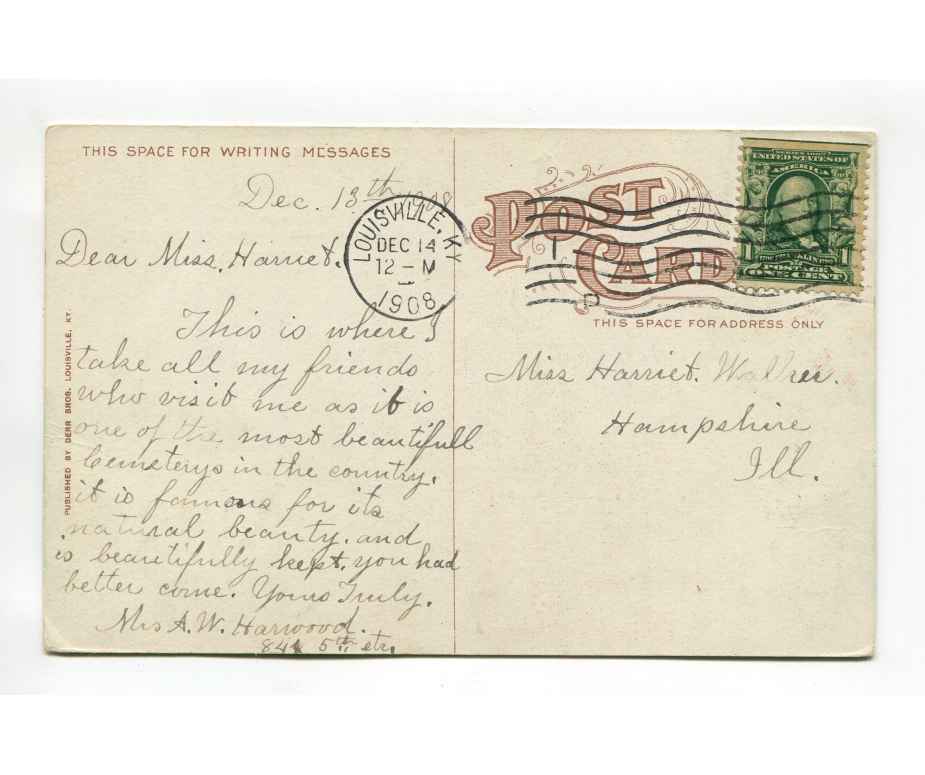 THIS SPACE FOR WRITING MESSAGES
Dec. 13th 1908
Dear Miss. Harriet.
This is where I
take all my friends
who visit me as it is
one of the most beautifull
Cemeterys in the country.
it is famous for its
natural beauty. and
is beautifully kept. you had
better come. Yours Truly.
Mrs A. W. Harwood.
5th str.
PUBLISHED BY DERR BROS. LOUISVILLE, KY.
LOUISVILLE, KY
DEC 14
12 – M
1908
POST
CARD
UNITED STATES OF
AMERICA
1 1
POSTAGE
ONE CENT
THIS SPACE FOR ADDRESS ONLY
Miss Harriet.
Hampshire
Ill.